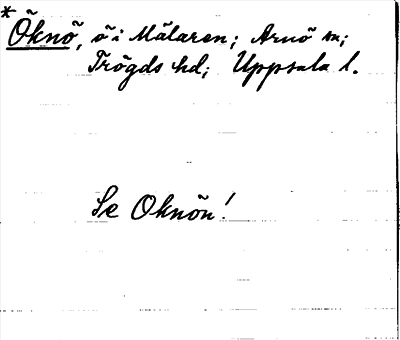 *Öknö, ö i Mälaren; Arnö sn;
Trögds hd; Uppsala l.
Se Oknön!